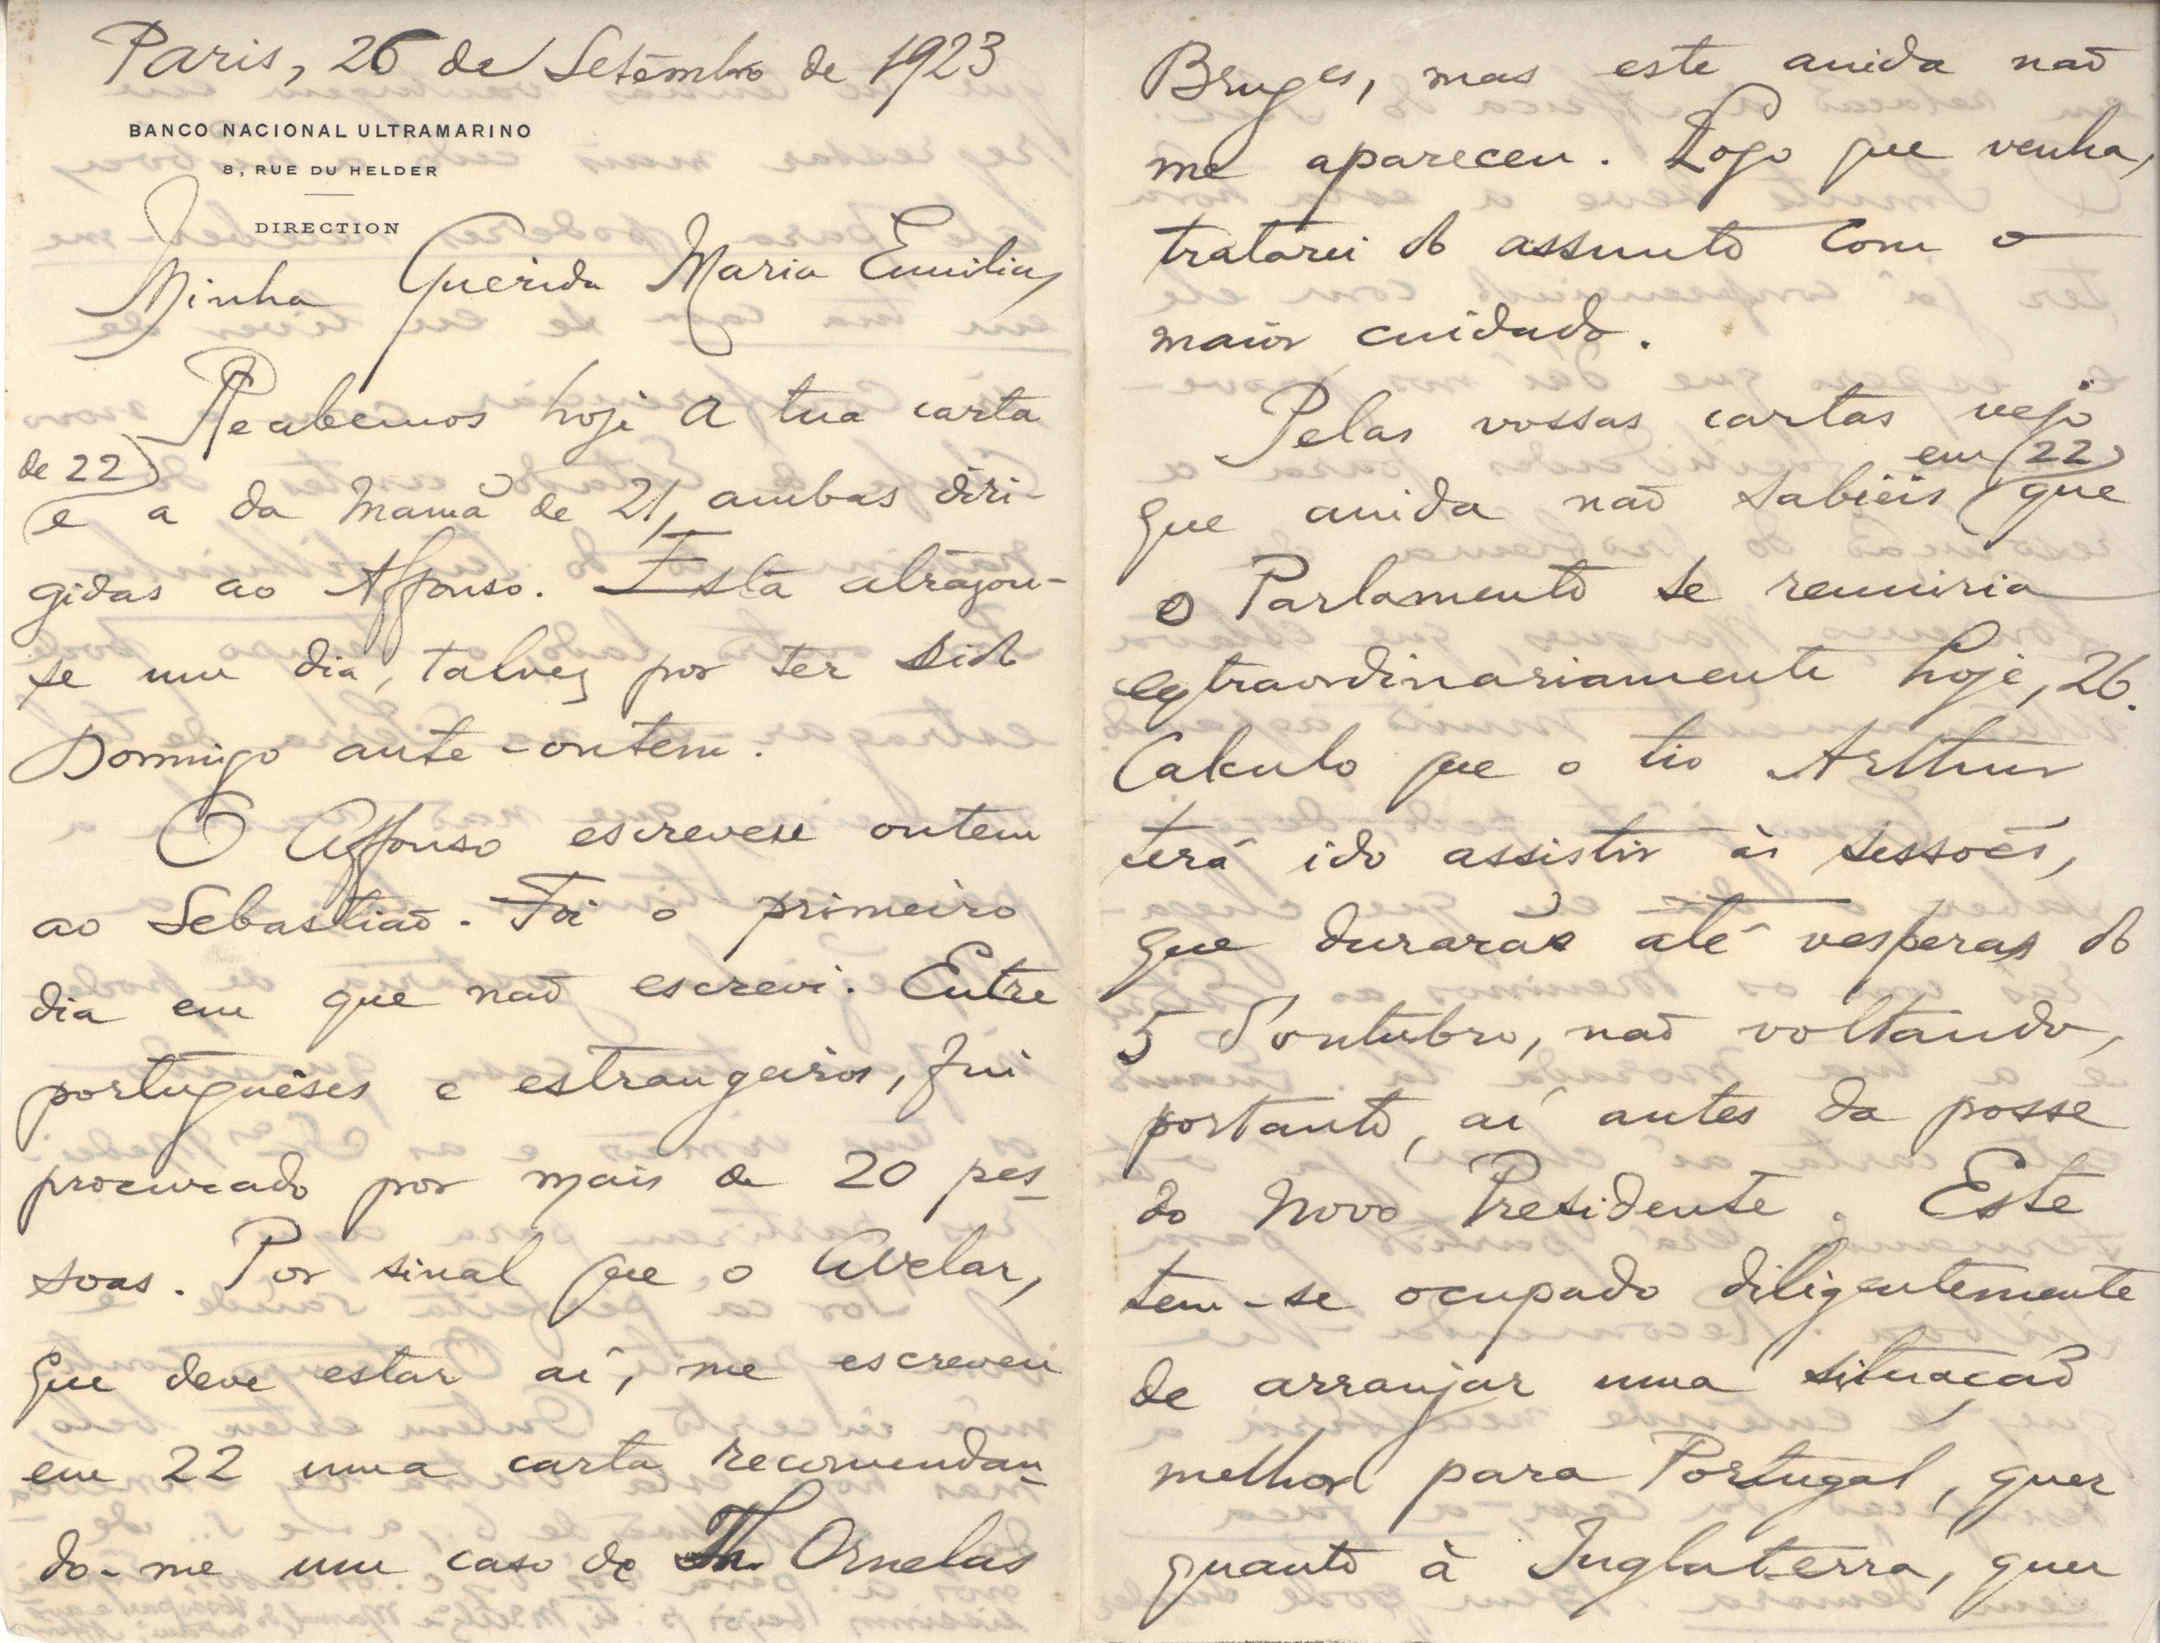 Paris, 26 de Setembro de 1923
BANCO NACIONAL ULTRAMARINO
8, RUE DU HELDER
DIRECTION
Minha Querida Maria Emilia,
Recebemos hoje a tua carta
de 22
e a da Mamã de 21, ambas diri-
gidas ao Affonso. Esta atrazou-
se um dia, talvez por ter sido
Domingo ante-ontem.
O Affonso escreveu ontem
ao Sebastião. Foi o primeiro
dia em que não escrevi. Entre
portuguêses e estrangeiros, fui
procurado por mais de 20 pes-
soas. Por sinal que o Avelar,
que deve estar aí, me escreveu
em 22 uma carta recomendan-
do-me um caso de Th. Ornelas
Bruges, mas este ainda não
me apareceu. Logo que venha,
tratarei do assunto com o
maior cuidado.
Pelas vossas cartas vejo
em 22
que ainda não sabieis que
o Parlamento se reuniria
extraordinariamente hoje, 26.
Calculo que o tio Arthur
terá ido assistir às sessões,
que durarão até vesperas do
5 d'outubro, não voltando,
portanto, aí antes da posse
do novo Presidente. Este
tem-se ocupado diligentemente
de arranjar uma situação
melhor para Portugal, quer
quanto à Inglaterra, quer